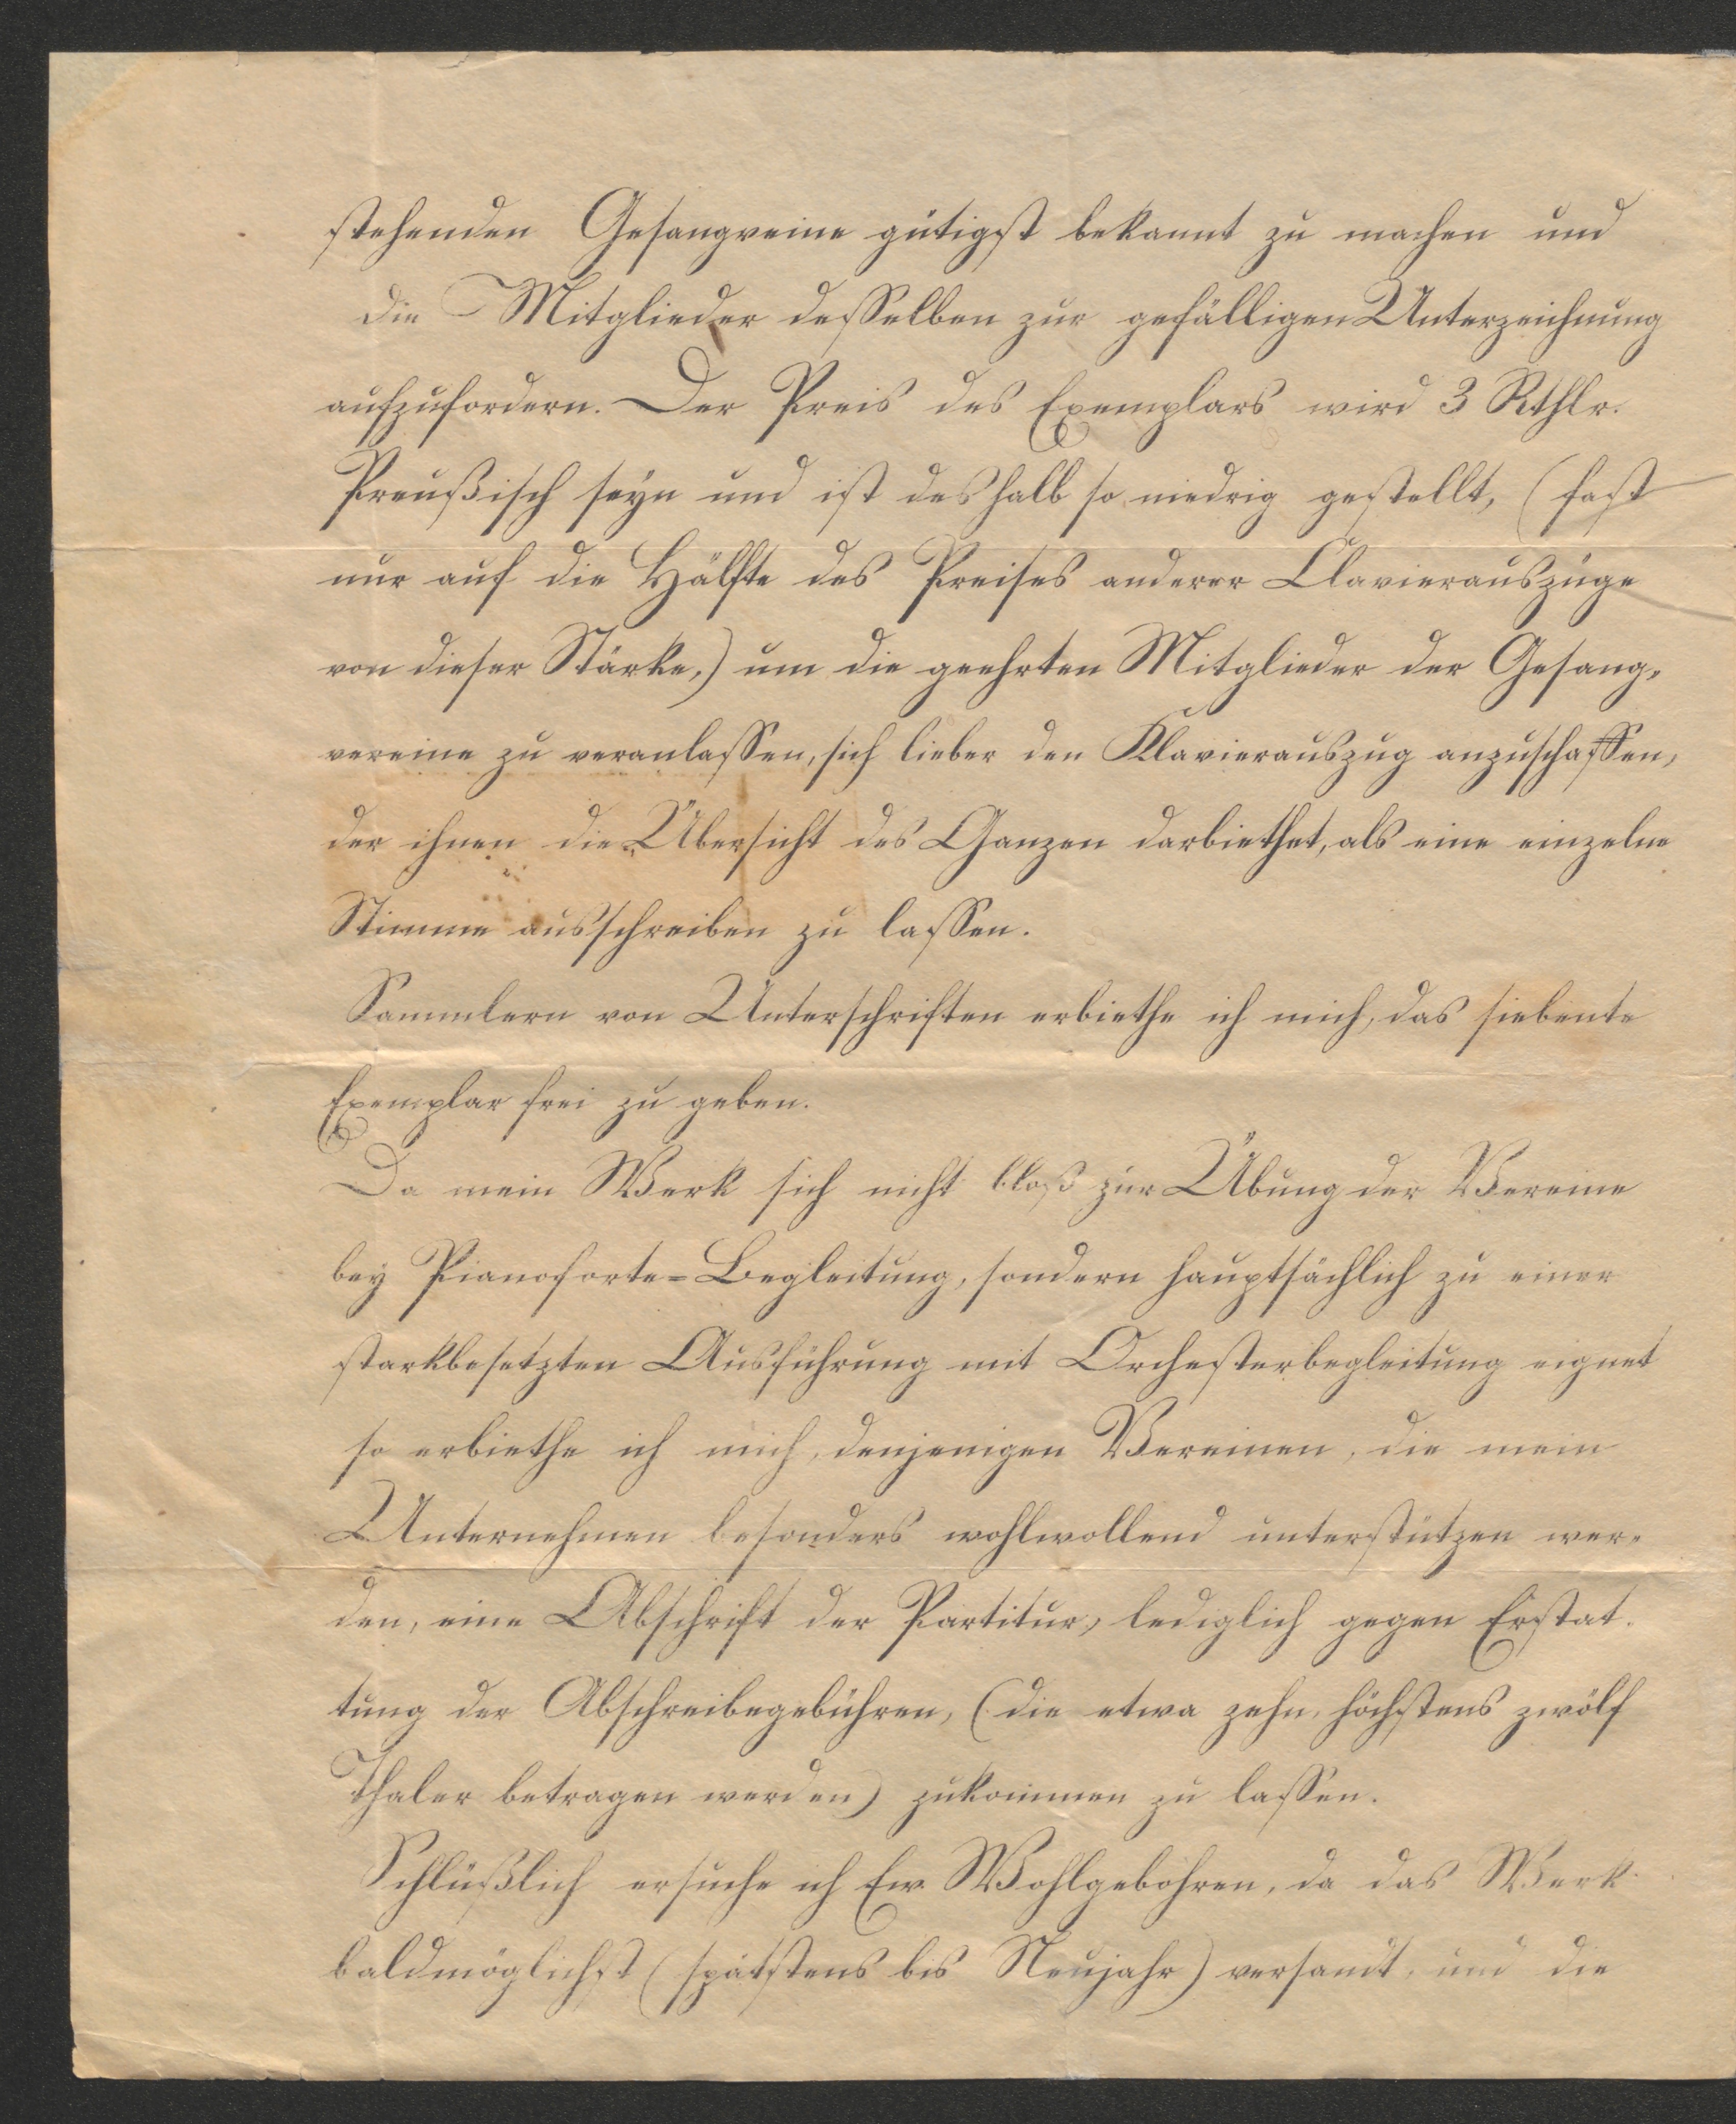 stehenden Gesangvereine gütigst bekannt zu machen und
die Mitglieder desselben zur gefälligen Unterzeichnung
aufzufordern. Der Preis des Exemplars wird 3 Rthlr.
Preußisch seyn und ist deshalb so niedrig gestellt, (fast
nur auf die Hälfte des Preises anderer Clavierauszüge
von dieser Stärke,) um die geehrten Mitglieder der Gesang-
vereine zu veranlassen, sich lieber den Klavierauszug anzuschaffen,
der ihnen die Übersicht des Ganzen darbiethet, als eine einzelne
Stimme ausschreiben zu lassen.
Sammlern von Unterschriften erbiethe ich mich, das siebente
Exemplar frei zu geben.
Da mein Werk sich nicht bloß zur Übung der Vereine
bey Pianoforte=Begleitung, sondern hauptsächlich zu einer
starkbesetzten Ausführung mit Orchesterbegleitung eignet
so erbiethe ich mich, denjenigen Vereinen, die mein
Unternehmen besonders wohlwollend unterstützen wer-
den, eine Abschrift der Partitur, lediglich gegen Erstat-
tung der Abschreibegebühren, (die etwa zehn, höchstens zwölf
Thaler betragen werden) zukommen zu lassen.
Schlüßlich ersuche ich Ew. Wohlgebohren, da das Werk
baldmöglichst (spätstens bis Neujahr) versandt, und die